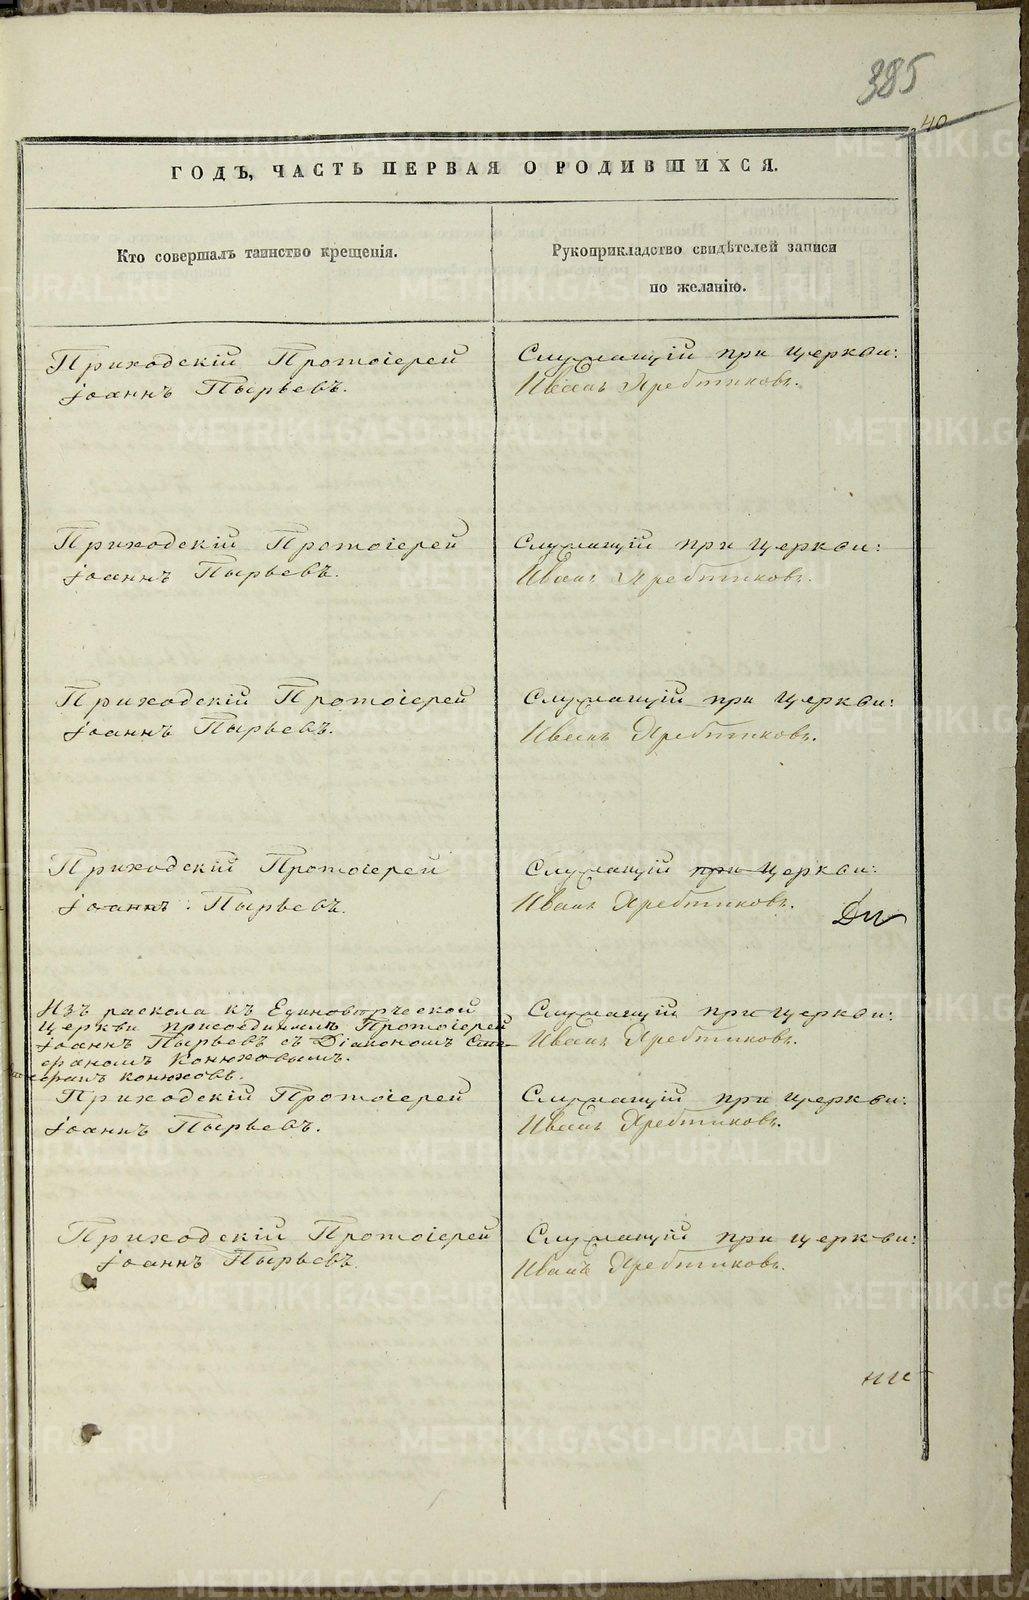 385
40
ГОДЪ, ЧАСТЬ ПЕРВАЯ О РОДИВШИХСЯ.
Кто совершалъ таинство крещенія.
Рукоприкладство свидѣтелей записи
по желанію.
Приходскій Протоіерей
Іоаннъ Пырьевъ.
Служащій при церкви:
Иванъ Ярептиковъ.
Приходскій Протоіерей
Іоаннъ Пырьевъ.
Служащій при церкви:
Иванъ Ярептиковъ.
Приходскій Протоіерей
Іоаннъ Пырьевъ.
Служащій при церкви:
Иванъ Ярептиковъ.
Приходскій Протоіерей
Іоаннъ Пырьевъ.
Служащій при церкви:
Иванъ Ярептиковъ.
Изъ раскола къ Единовѣрческой
церкви присоединилъ Протоіерей
Іоаннъ Пырьевъ съ Діакономъ Сте-
фаномъ Конюховымъ.
Конюховъ.
Служащій при церкви:
Иванъ Ярептиковъ.
Приходскій Протоіерей
Іоаннъ Пырьевъ.
Служащій при церкви:
Иванъ Ярептиковъ.
Приходскій Протоіерей
Іоаннъ Пырьевъ.
Служащій при церкви:
Иванъ Ярептиковъ.
METRIKI.GASO-URAL.RU